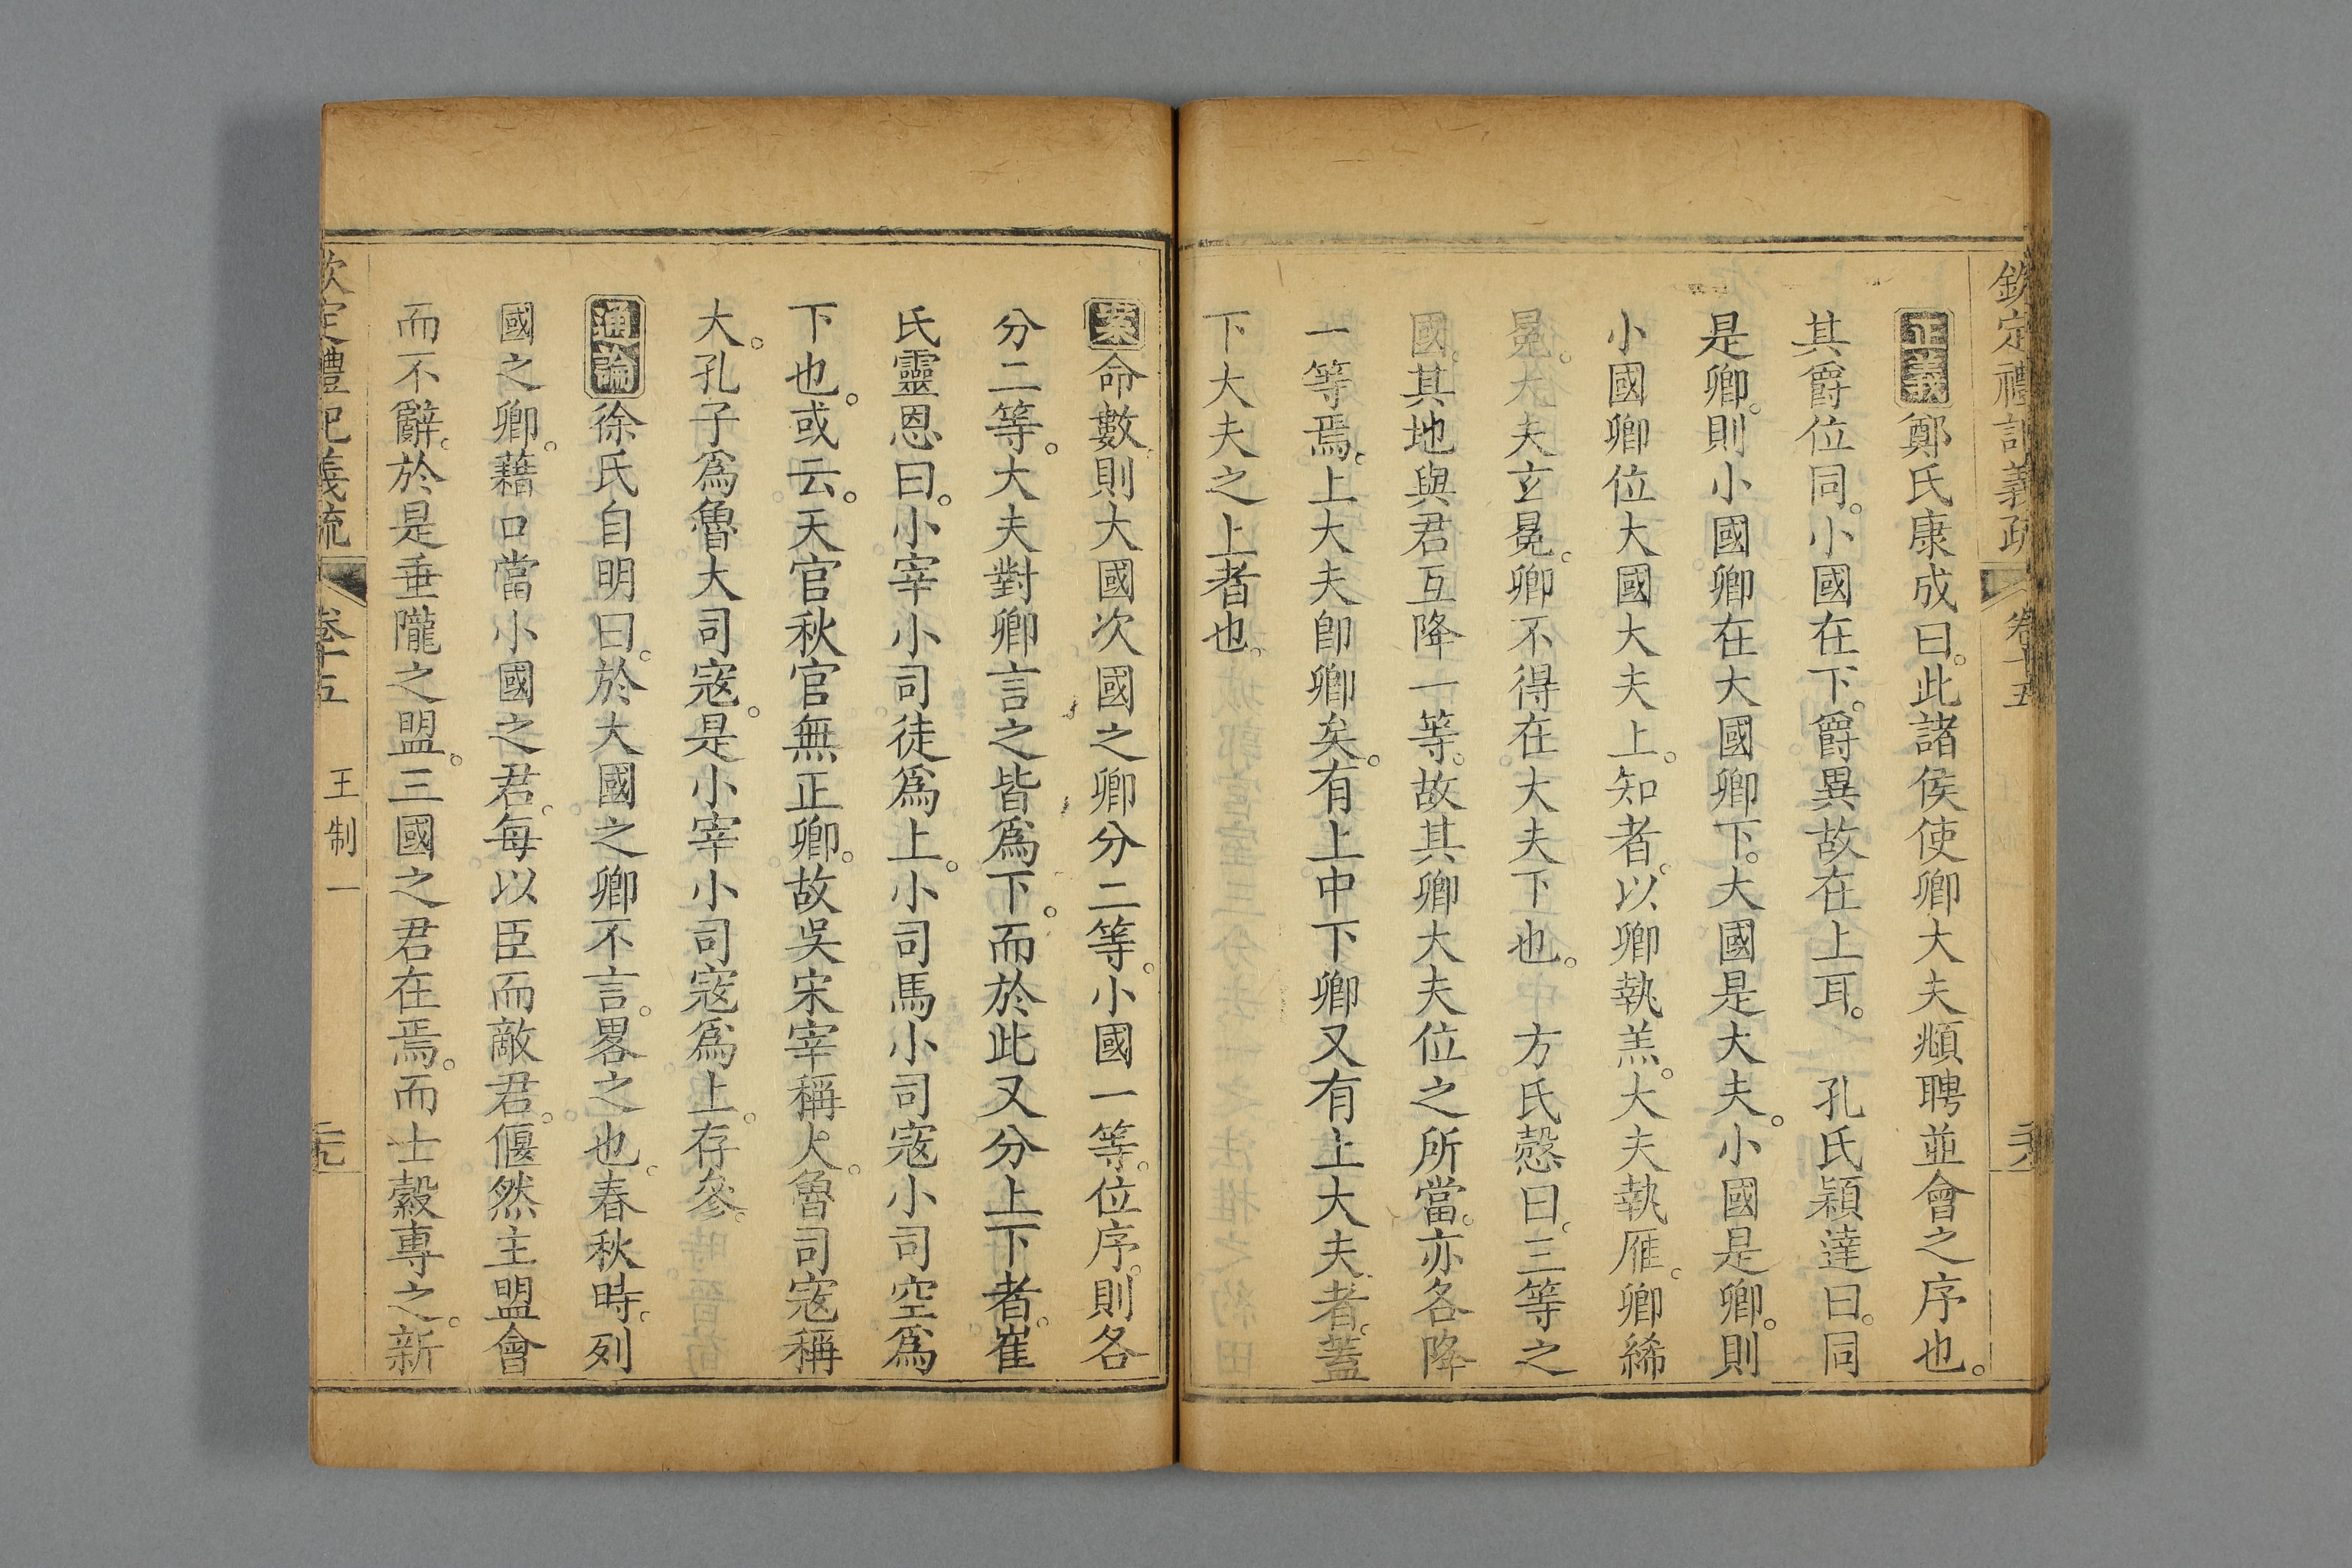 欽定禮記義疏 卷十五
正義鄭氏康成曰。此諸侯使卿大夫頫聘並會之序也。
其爵位同。小國在下。爵異故在上耳。 孔氏穎達曰。同
是卿。則小國卿在大國卿下。大國是大夫。小國是卿。則
小國卿位大國大夫上。知者。以卿執羔。大夫執雁。卿絺
冕。大夫玄冕。卿不得在大夫下也。 方氏慤曰。三等之
國。其地與君互降一等。故其卿大夫位之所當。亦各降
一等焉。上大夫卽卿矣。有上中下卿又有上大夫者。蓋
下大夫之上者也。
案命數則大國次國之卿分二等。小國一等。位序。則各
分二等。大夫對卿言之皆爲下。而於此又分上下者。崔
氏靈恩曰。小宰小司徒爲上。小司馬小司寇小司空爲
下也。或云。天官秋官無正卿。故吳宋宰稱人。魯司寇稱
大。孔子爲魯大司寇。是小宰小司寇爲上。存參。
通論徐氏自明曰。於大國之卿不言。畧之也。春秋時。列
國之卿。藉口當小國之君。每以臣而敵君。偃然主盟會
而不辭。於是垂隴之盟。三國之君在焉。而士縠專之。新
欽定禮記義疏 卷十五 王制一 二十九